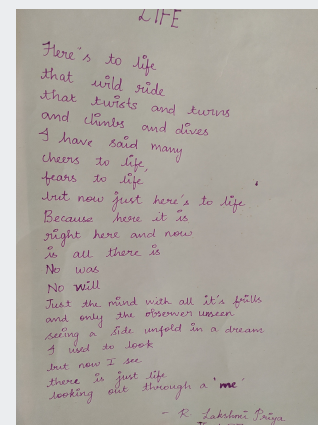 LIFE
Here's to life
that wild ride
that twists and turns
and climbs and dives
I have said many
cheers to life,
fears to life
but now just here's to life
Because here it is
right here and now
is all there is
No was
No will
Just the mind with all it's frills
and only the observer unseen
seeing a side unfold in a dream
I used to look
but now I see
there is just life
looking out through a 'me'
- R. Lakshmi Priya